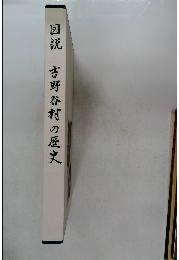 図説 吉野谷村の歴史